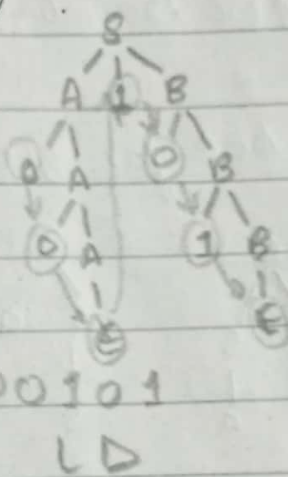 S
A 1 B
0 A 0 B
0 A 1 B
ε ε
00101
LD